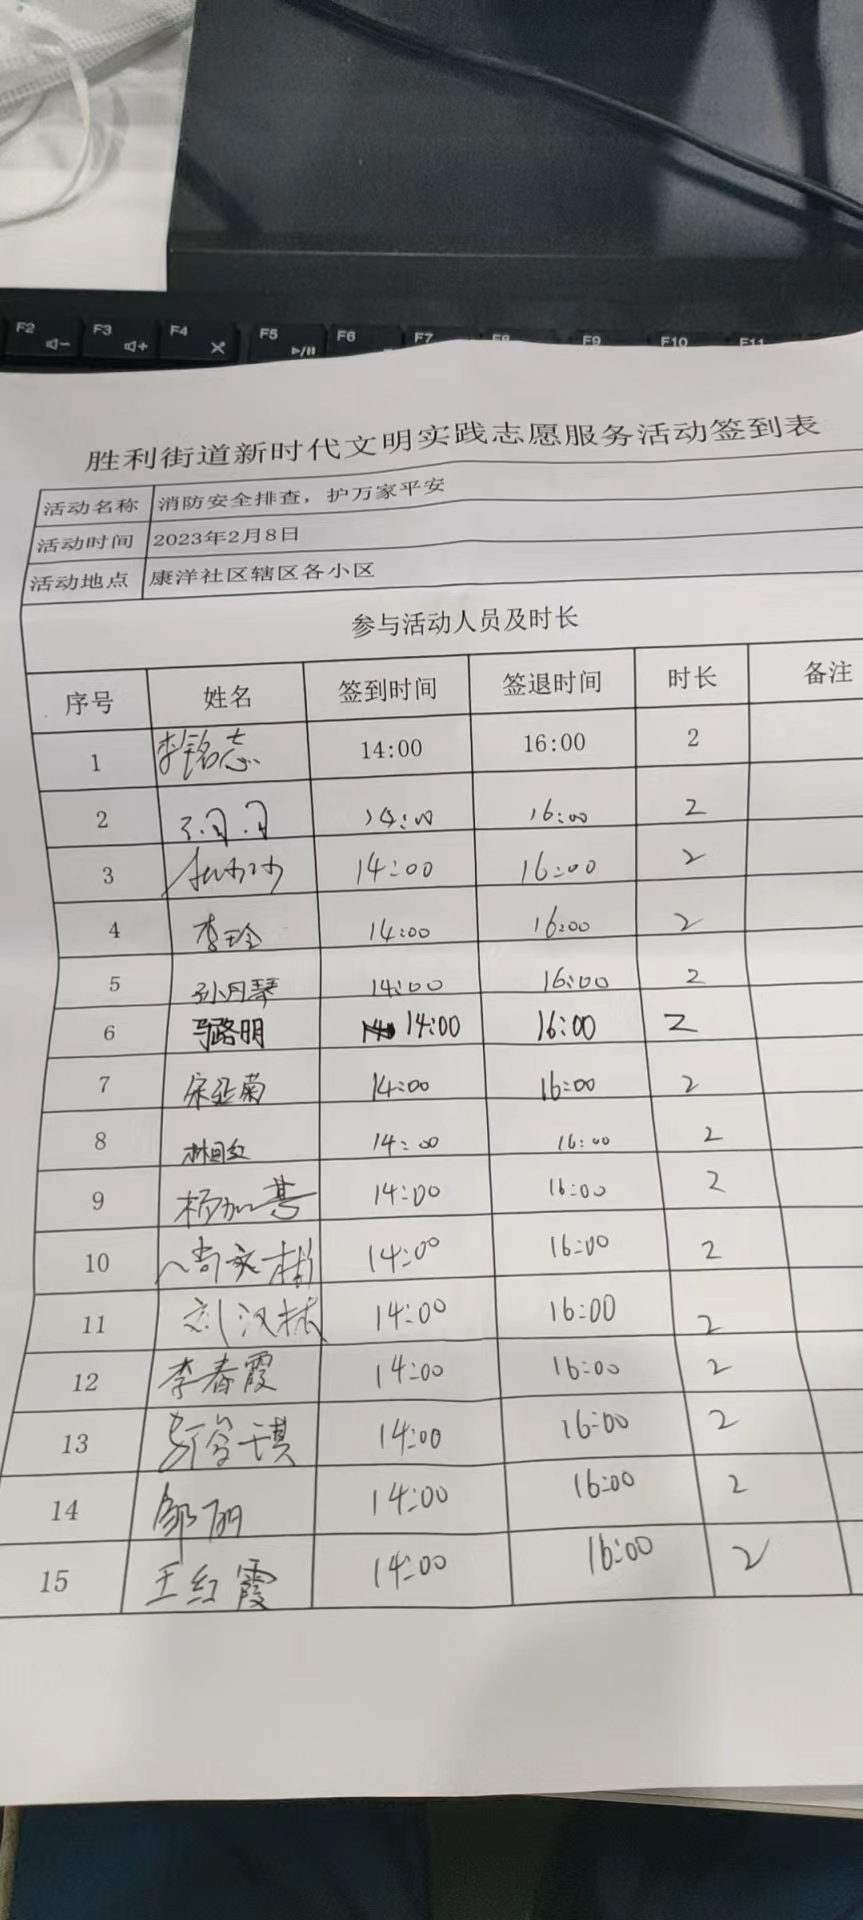 F2 F3 F4 F5 F6 F7 F8 F9 F10 F11
胜利街道新时代文明实践志愿服务活动签到表
活动名称 消防安全排查，护万家平安
活动时间 2023年2月8日
活动地点 康洋社区辖区各小区
参与活动人员及时长
序号 姓名 签到时间 签退时间 时长 备注
1 李铭志 14:00 16:00 2
2 14:00 16:00 2
3 14:00 16:00 2
4 李玲 14:00 16:00 2
5 孙月琴 14:00 16:00 2
6 马路明 14:00 16:00 2
7 宋亚菊 14:00 16:00 2
8 14:00 16:00 2
9 杨加喜 14:00 16:00 2
10 14:00 16:00 2
11 刘汉林 14:00 16:00 2
12 李春霞 14:00 16:00 2
13 14:00 16:00 2
14 邹丽 14:00 16:00 2
15 王红霞 14:00 16:00 2